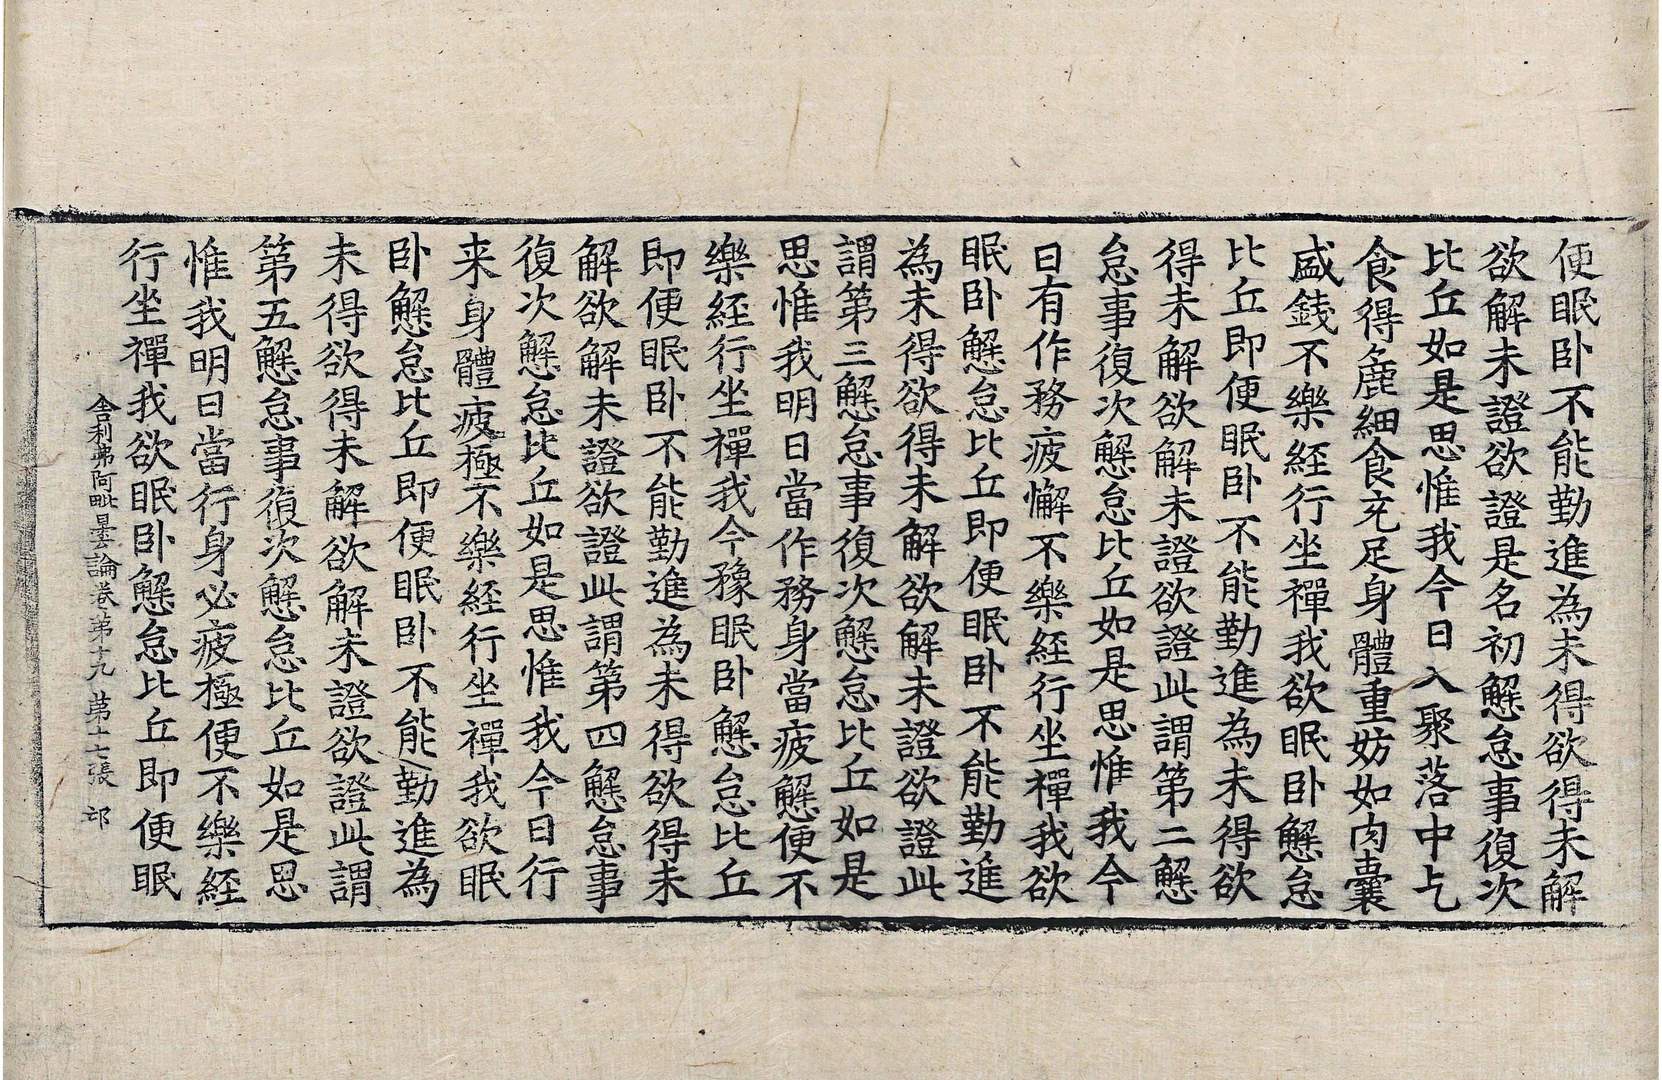 便眠卧不能勤進為未得欲得未解
欲解未證欲證是名初懈怠事復次
比丘如是思惟我今日入聚落中乞
食得麁細食充足身體重妨如肉囊
盛錢不樂經行坐禪我欲眠卧懈怠
比丘即便眠卧不能勤進為未得欲
得未解欲解未證欲證此謂第二懈
怠事復次懈怠比丘如是思惟我今
日有作務疲懈不樂經行坐禪我欲
眠卧懈怠比丘即便眠卧不能勤進
為未得欲得未解欲解未證欲證此
謂第三懈怠事復次懈怠比丘如是
思惟我明日當作務身當疲懈便不
樂經行坐禪我今豫眠卧懈怠比丘
即便眠卧不能勤進為未得欲得未
解欲解未證欲證此謂第四懈怠事
復次懈怠比丘如是思惟我今日行
来身體疲極不樂經行坐禪我欲眠
卧懈怠比丘即便眠卧不能勤進為
未得欲得未解欲解未證欲證此謂
第五懈怠事復次懈怠比丘如是思
惟我明日當行身必疲極便不樂經
行坐禪我欲眠卧懈怠比丘即便眠
舍利弗阿毗曇論卷第十九 第十七張